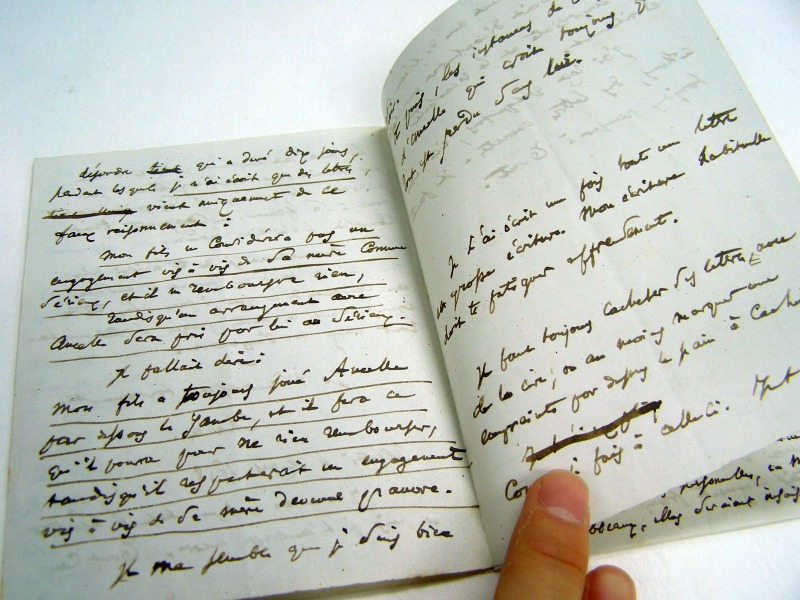 qui a duré dix jours,
pendant lesquels je n'ai écrit que des lettres,
vient uniquement de ce
faux raisonnement :
Mon fils ne considérera pas un
engagement vis à vis de sa mère comme
sérieux, et il ne remboursera rien,
tandisqu'un arrangement avec
Ancelle sera pris par lui au sérieux.
Il fallait dire :
Mon fils a toujours joué Ancelle
par dessous la jambe, et il fera ce
qu'il pourra pour ne rien rembourser,
tandisqu'il respecterait un engagement
vis à vis de sa mère devenue pauvre.
Il me semble que je dois bien
et puis, les instances de
d'Ancelle qui croit toujours
tout est perdu sans lui.
Je t'ai écrit une fois toute une lettre
en grosse écriture. Mon écriture habituelle
doit te fatiguer affreusement.
Il faut toujours cacheter des lettres avec
de la cire, ou au moins marquer une
empreinte par dessus le pain à
je fais à celle-ci.